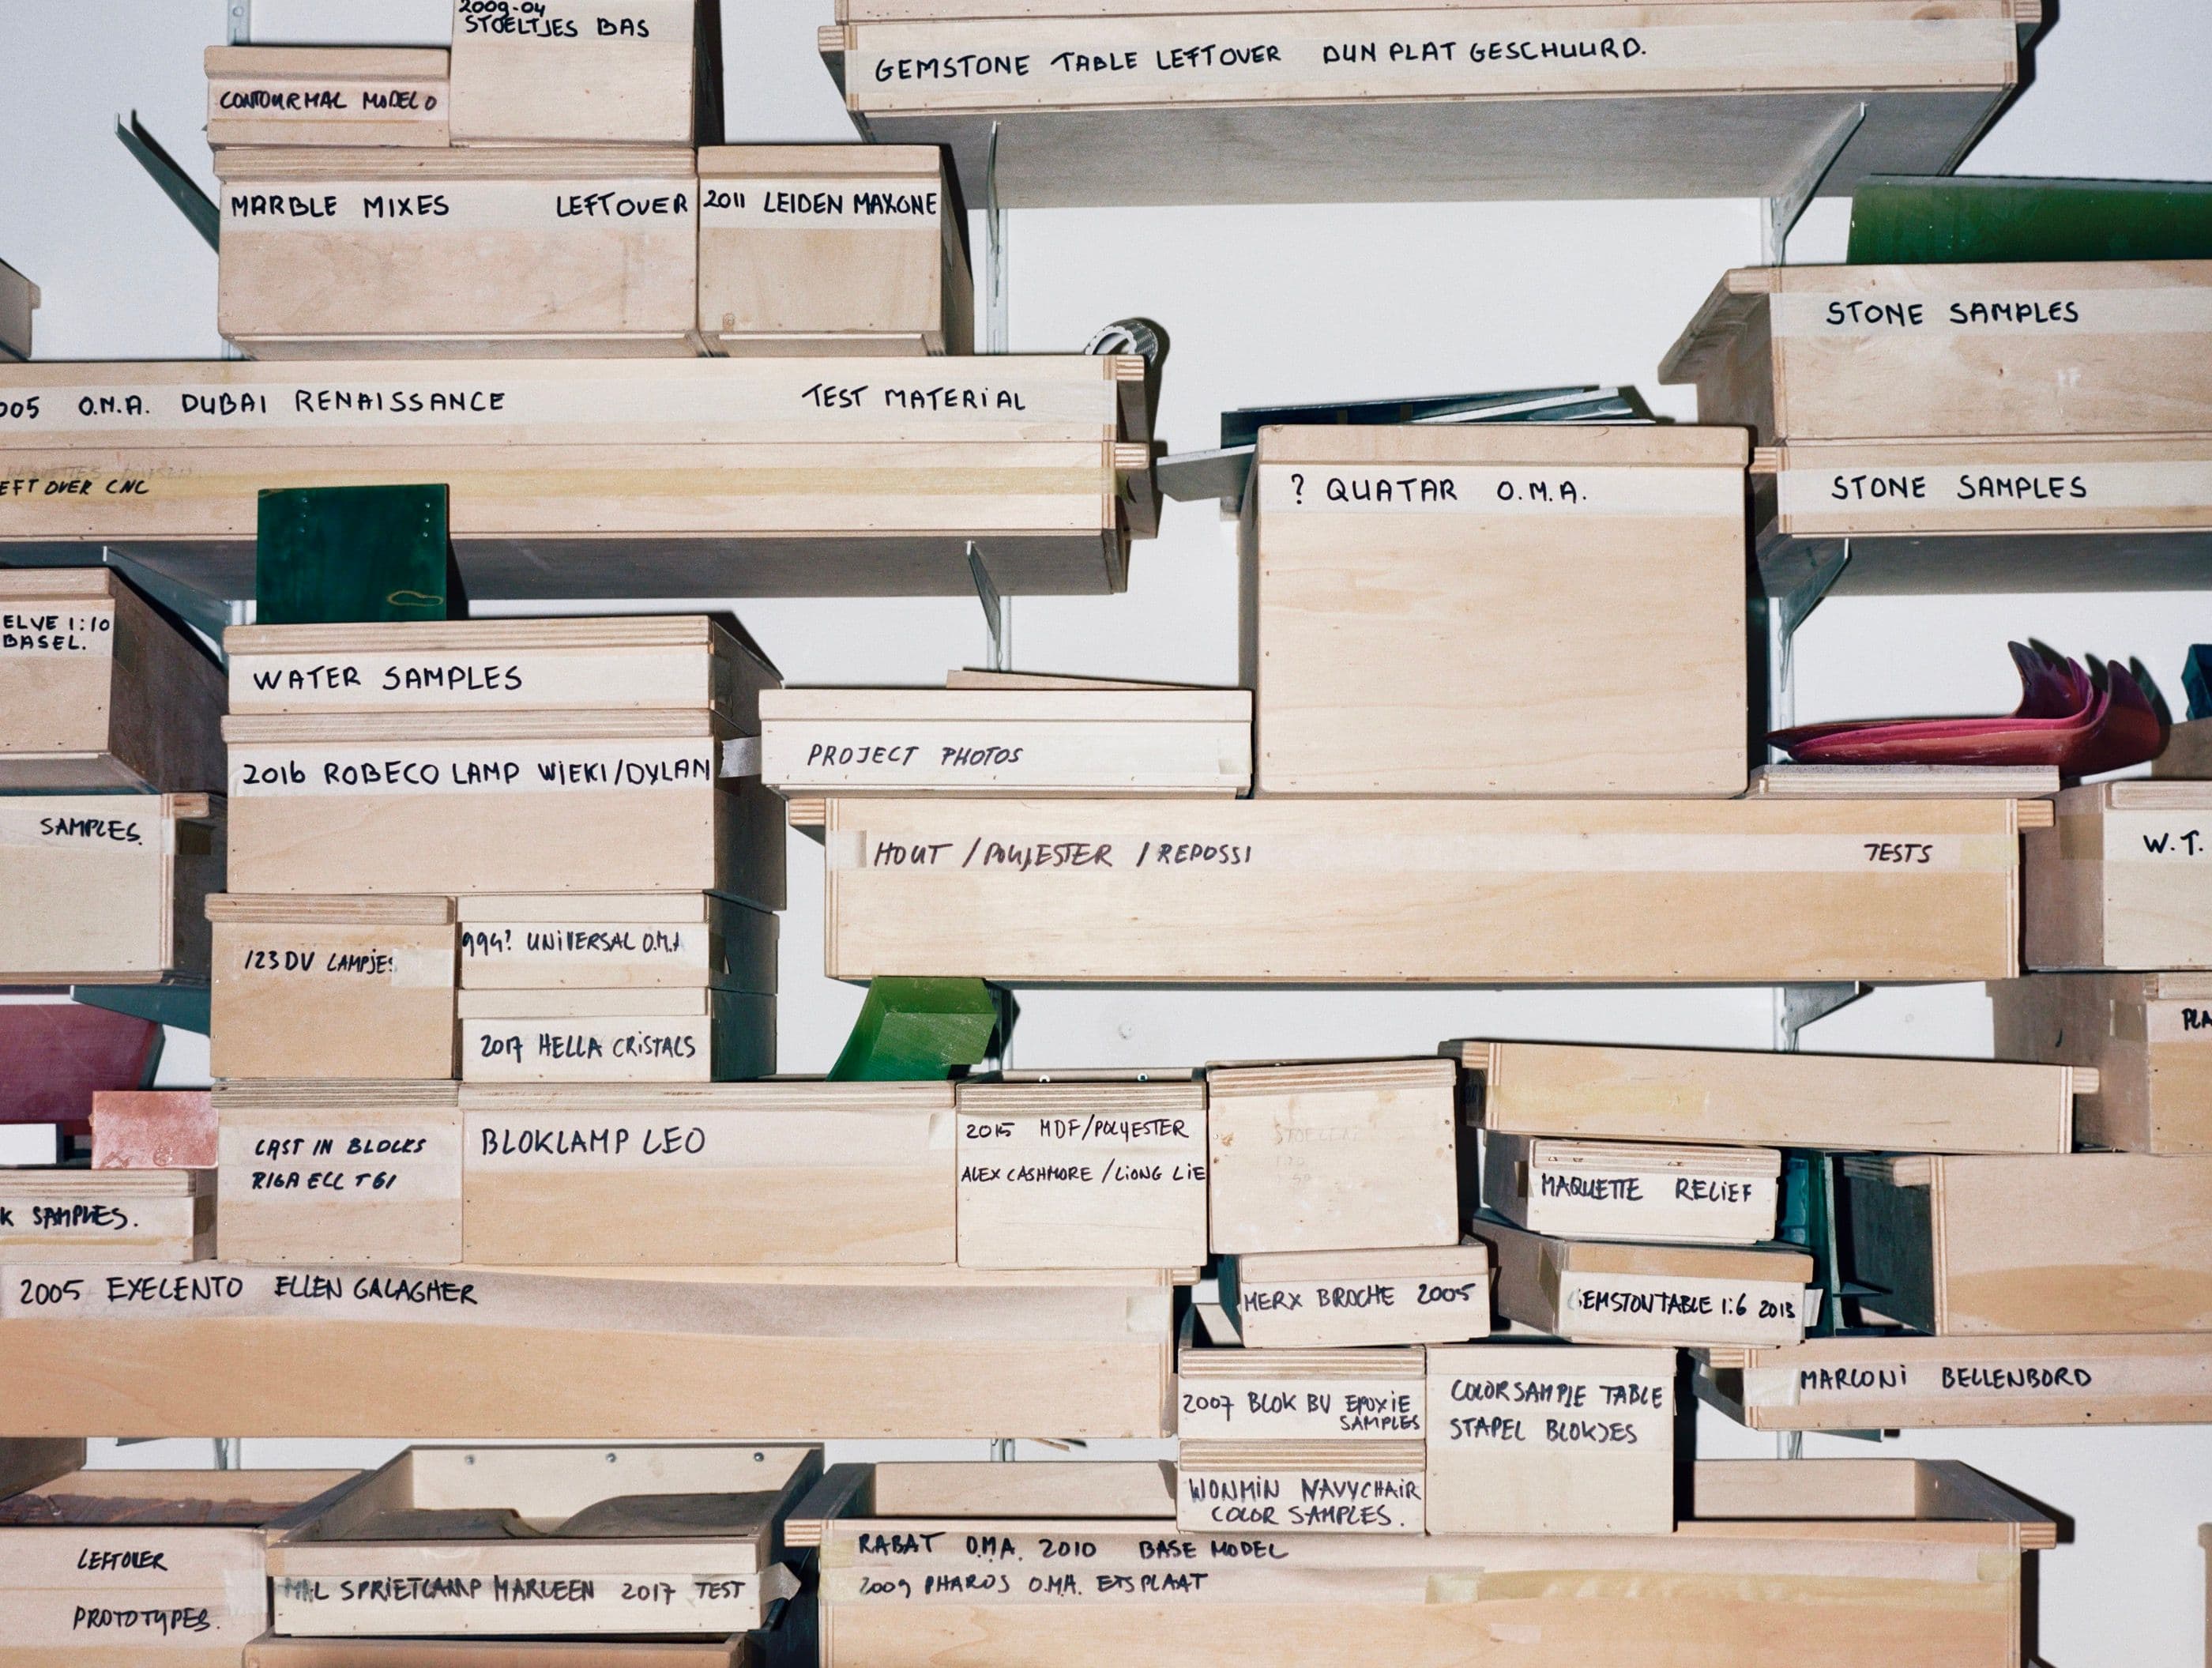 2009-04
STOELTJES BAS
GEMSTONE TABLE LEFTOVER DUN PLAT GESCHUURD.
CONTOURMAL MODEL O
MARBLE MIXES LEFTOVER
2011 LEIDEN MAXONE
STONE SAMPLES
005 O.M.A. DUBAI RENAISSANCE TEST MATERIAL
EFT OVER CNC
? QUATAR O.M.A.
STONE SAMPLES
ELVE 1:10
BASEL.
WATER SAMPLES
PROJECT PHOTOS
2016 ROBECO LAMP WIEKI/DYLAN
SAMPLES.
HOUT / POLYESTER / REPOSSI TESTS
W.T.
123 DV LAMPJES
994? UNIVERSAL O.M.A
2017 HELLA CRISTALS
PLA
CAST IN BLOCKS
RIGA ECC T61
BLOKLAMP LEO
2015 MDF/POLYESTER
ALEX CASHMORE / LIONG LIE
MAQUETTE RELIEF
K SAMPLES.
2005 EXELENTO ELLEN GALAGHER
MERX BROCHE 2005
GEMSTONTABLE 1:6 2013
MARCONI BELLENBORD
2007 BLOK BV EPOXIE
SAMPLES
COLORSAMPLE TABLE
STAPEL BLOKJES
WONMIN NAVYCHAIR
COLOR SAMPLES.
LEFTOVER
PROTOTYPES.
MAL SPRIETLAMP MARLEEN 2017 TEST
RABAT O.M.A. 2010 BASE MODEL
2009 PHAROS O.M.A. ETSPLAAT